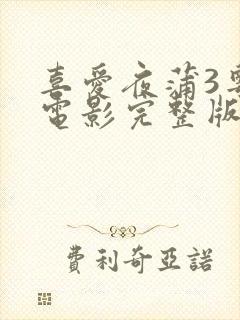 喜愛夜蒲3
電影完整版
費利奇亞諾